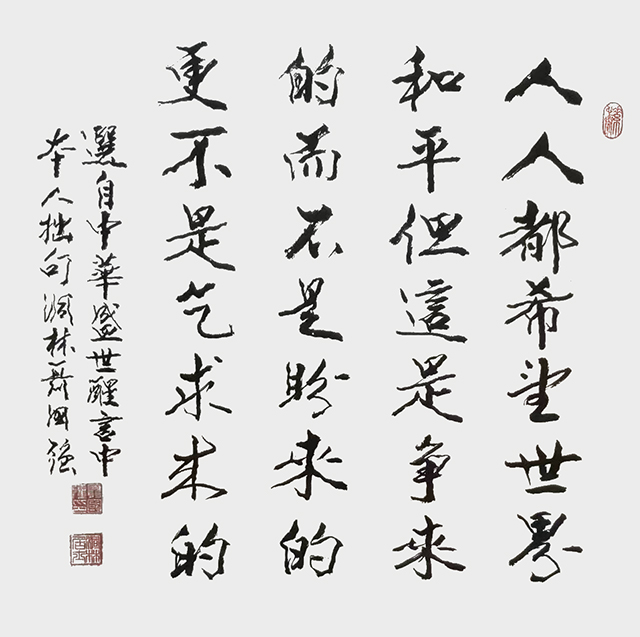 人人都希望世界
和平但這是争来
的而不是盼来的
更不是乞求来的
選自中華盛世醒言中
本人拙句林聂国强